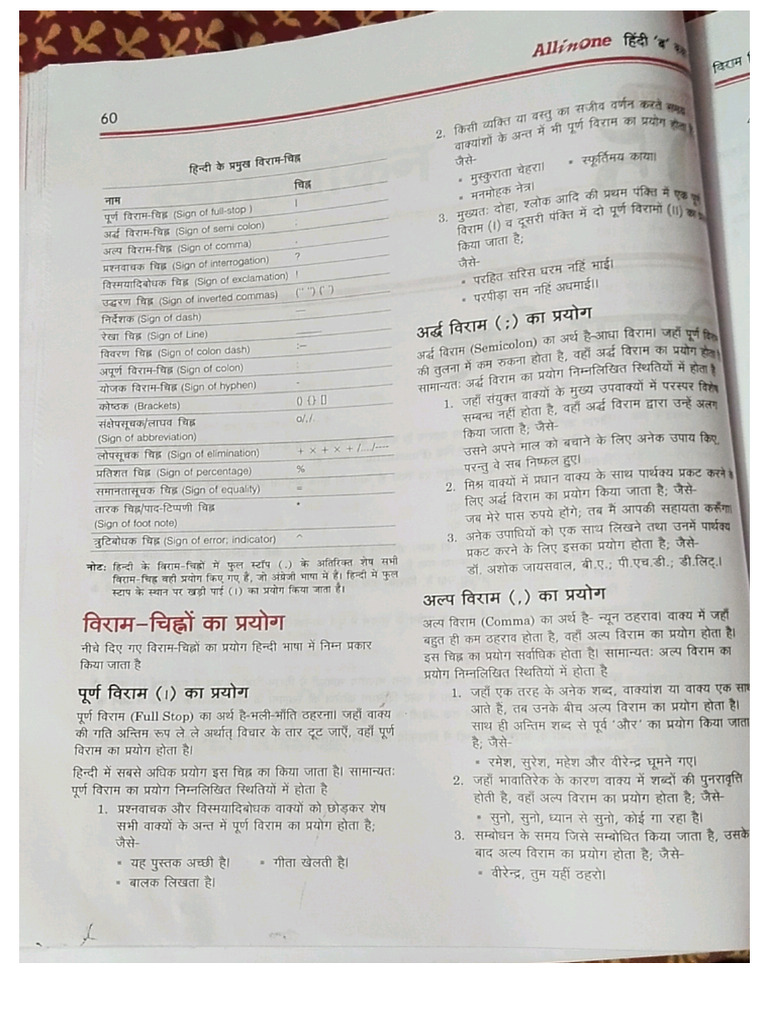 60
AllinOne हिंदी 'ब'
विराम
हिन्दी के प्रमुख विराम-चिह्न
नाम चिह्न
पूर्ण विराम-चिह्न (Sign of full-stop ) ।
अर्द्ध विराम-चिह्न (Sign of semi colon) ;
अल्प विराम-चिह्न (Sign of comma) ,
प्रश्नवाचक चिह्न (Sign of interrogation) ?
विस्मयादिबोधक चिह्न (Sign of exclamation) !
उद्धरण चिह्न (Sign of inverted commas) (" ") (' ')
निर्देशक (Sign of dash) —
रेखा चिह्न (Sign of Line)
विवरण चिह्न (Sign of colon dash) :–
अपूर्ण विराम-चिह्न (Sign of colon) :
योजक विराम-चिह्न (Sign of hyphen) -
कोष्ठक (Brackets) () {} []
संक्षेपसूचक/लाघव चिह्न o/,/.
(Sign of abbreviation)
लोपसूचक चिह्न (Sign of elimination) + × + × + /..../----
प्रतिशत चिह्न (Sign of percentage) %
समानतासूचक चिह्न (Sign of equality) =
तारक चिह्न/पाद-टिप्पणी चिह्न *
(Sign of foot note)
त्रुटिबोधक चिह्न (Sign of error; indicator) ^
नोट: हिन्दी के विराम-चिह्नों में फुल स्टॉप (.) के अतिरिक्त शेष सभी
विराम-चिह्न वही प्रयोग किए गए है, जो अंग्रेजी भाषा में है। हिन्दी में फुल
स्टाप के स्थान पर खड़ी पाई (।) का प्रयोग किया जाता है।
विराम-चिह्नों का प्रयोग
नीचे दिए गए विराम-चिह्नों का प्रयोग हिन्दी भाषा में निम्न प्रकार
किया जाता है
पूर्ण विराम (।) का प्रयोग
पूर्ण विराम (Full Stop) का अर्थ है-भली-भाँति ठहरना। जहाँ वाक्य
की गति अन्तिम रूप ले ले अर्थात् विचार के तार टूट जाएँ, वहाँ पूर्ण
विराम का प्रयोग होता है।
हिन्दी में सबसे अधिक प्रयोग इस चिह्न का किया जाता है। सामान्यत:
पूर्ण विराम का प्रयोग निम्नलिखित स्थितियों में होता है
1. प्रश्नवाचक और विस्मयादिबोधक वाक्यों को छोड़कर शेष
सभी वाक्यों के अन्त में पूर्ण विराम का प्रयोग होता है;
जैसे-
• यह पुस्तक अच्छी है। • गीता खेलती है।
• बालक लिखता है।
2. किसी व्यक्ति या वस्तु का सजीव वर्णन करते समय
वाक्यांशों के अन्त में भी पूर्ण विराम का प्रयोग होता है
जैसे-
• मुस्कुराता चेहरा। • स्फूर्तिमय काया।
• मनमोहक नेत्र।
3. मुख्यत: दोहा, श्लोक आदि की प्रथम पंक्ति में एक पूर्ण
विराम (।) व दूसरी पंक्ति में दो पूर्ण विरामों (॥) का
किया जाता है;
जैसे-
• परहित सरिस धरम नहिं भाई।
• परपीड़ा सम नहिं अधमाई।।
अर्द्ध विराम (;) का प्रयोग
अर्द्ध विराम (Semicolon) का अर्थ है-आधा विराम। जहाँ पूर्ण विराम
की तुलना में कम रुकना होता है, वहाँ अर्द्ध विराम का प्रयोग होता है
सामान्यत: अर्द्ध विराम का प्रयोग निम्नलिखित स्थितियों में होता है
1. जहाँ संयुक्त वाक्यों के मुख्य उपवाक्यों में परस्पर विशेष
सम्बन्ध नहीं होता है, वहाँ अर्द्ध विराम द्वारा उन्हें अलग
किया जाता है; जैसे-
उसने अपने माल को बचाने के लिए अनेक उपाय किए,
परन्तु वे सब निष्फल हुए।
2. मिश्र वाक्यों में प्रधान वाक्य के साथ पार्थक्य प्रकट करने के
लिए अर्द्ध विराम का प्रयोग किया जाता है; जैसे-
जब मेरे पास रुपये होंगे; तब मैं आपकी सहायता करूँगा।
3. अनेक उपाधियों को एक साथ लिखने तथा उनमें पार्थक्य
प्रकट करने के लिए इसका प्रयोग होता है; जैसे-
डॉ. अशोक जायसवाल, बी.ए.; पी.एच.डी.; डी.लिट्.।
अल्प विराम (,) का प्रयोग
अल्प विराम (Comma) का अर्थ है- न्यून ठहराव। वाक्य में जहाँ
बहुत ही कम ठहराव होता है, वहाँ अल्प विराम का प्रयोग होता है।
इस चिह्न का प्रयोग सर्वाधिक होता है। सामान्यत: अल्प विराम का
प्रयोग निम्नलिखित स्थितियों में होता है
1. जहाँ एक तरह के अनेक शब्द, वाक्यांश या वाक्य एक साथ
आते हैं, तब उनके बीच अल्प विराम का प्रयोग होता है।
साथ ही अन्तिम शब्द से पूर्व 'और' का प्रयोग किया जाता
है; जैसे-
• रमेश, सुरेश, महेश और वीरेन्द्र घूमने गए।
2. जहाँ भावातिरेक के कारण वाक्य में शब्दों की पुनरावृत्ति
होती है, वहाँ अल्प विराम का प्रयोग होता है; जैसे-
• सुनो, सुनो, ध्यान से सुनो, कोई गा रहा है।
3. सम्बोधन के समय जिसे सम्बोधित किया जाता है, उसके
बाद अल्प विराम का प्रयोग होता है; जैसे-
• वीरेन्द्र, तुम यहीं ठहरो।